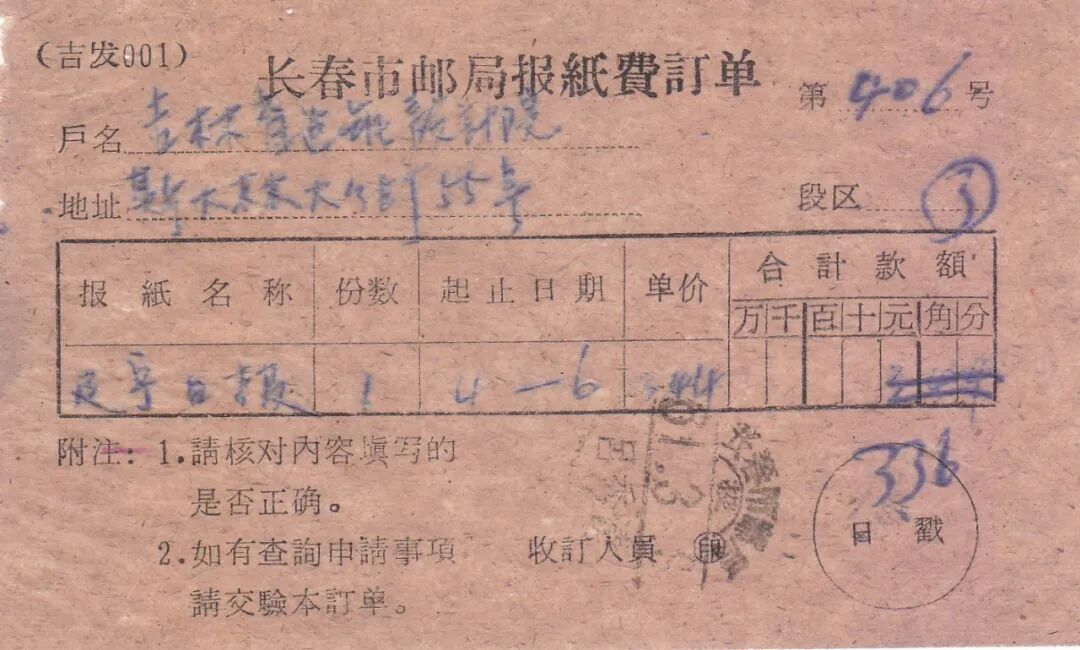 (吉发001)
长春市邮局报紙費訂单
第 406 号
戶名 吉林省造紙設計院
地址 斯大林大街55号
段区 3
报紙名称 份数 起止日期 单价 合計款額
万千百十元角分
日报 1 4—6
附注: 1.請核对內容填写的
是否正确。
2.如有查詢申請事項
請交驗本訂单。
收訂人員 印
61.3
336
日戳